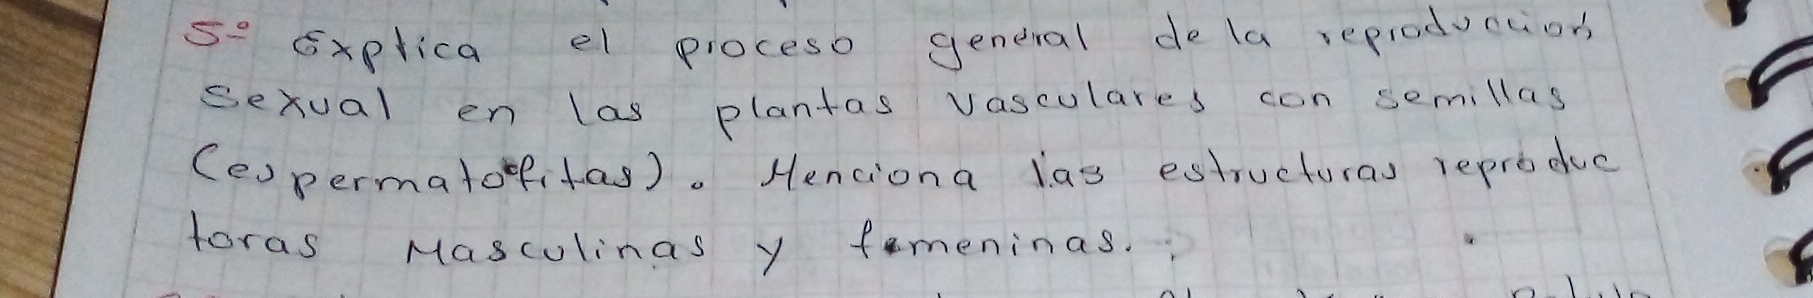 5º Explica el proceso general de la reproduccion
sexual en las plantas vasculares con semillas
(espermatofitas). Menciona las estructuras reproduc
toras Masculinas y femeninas.